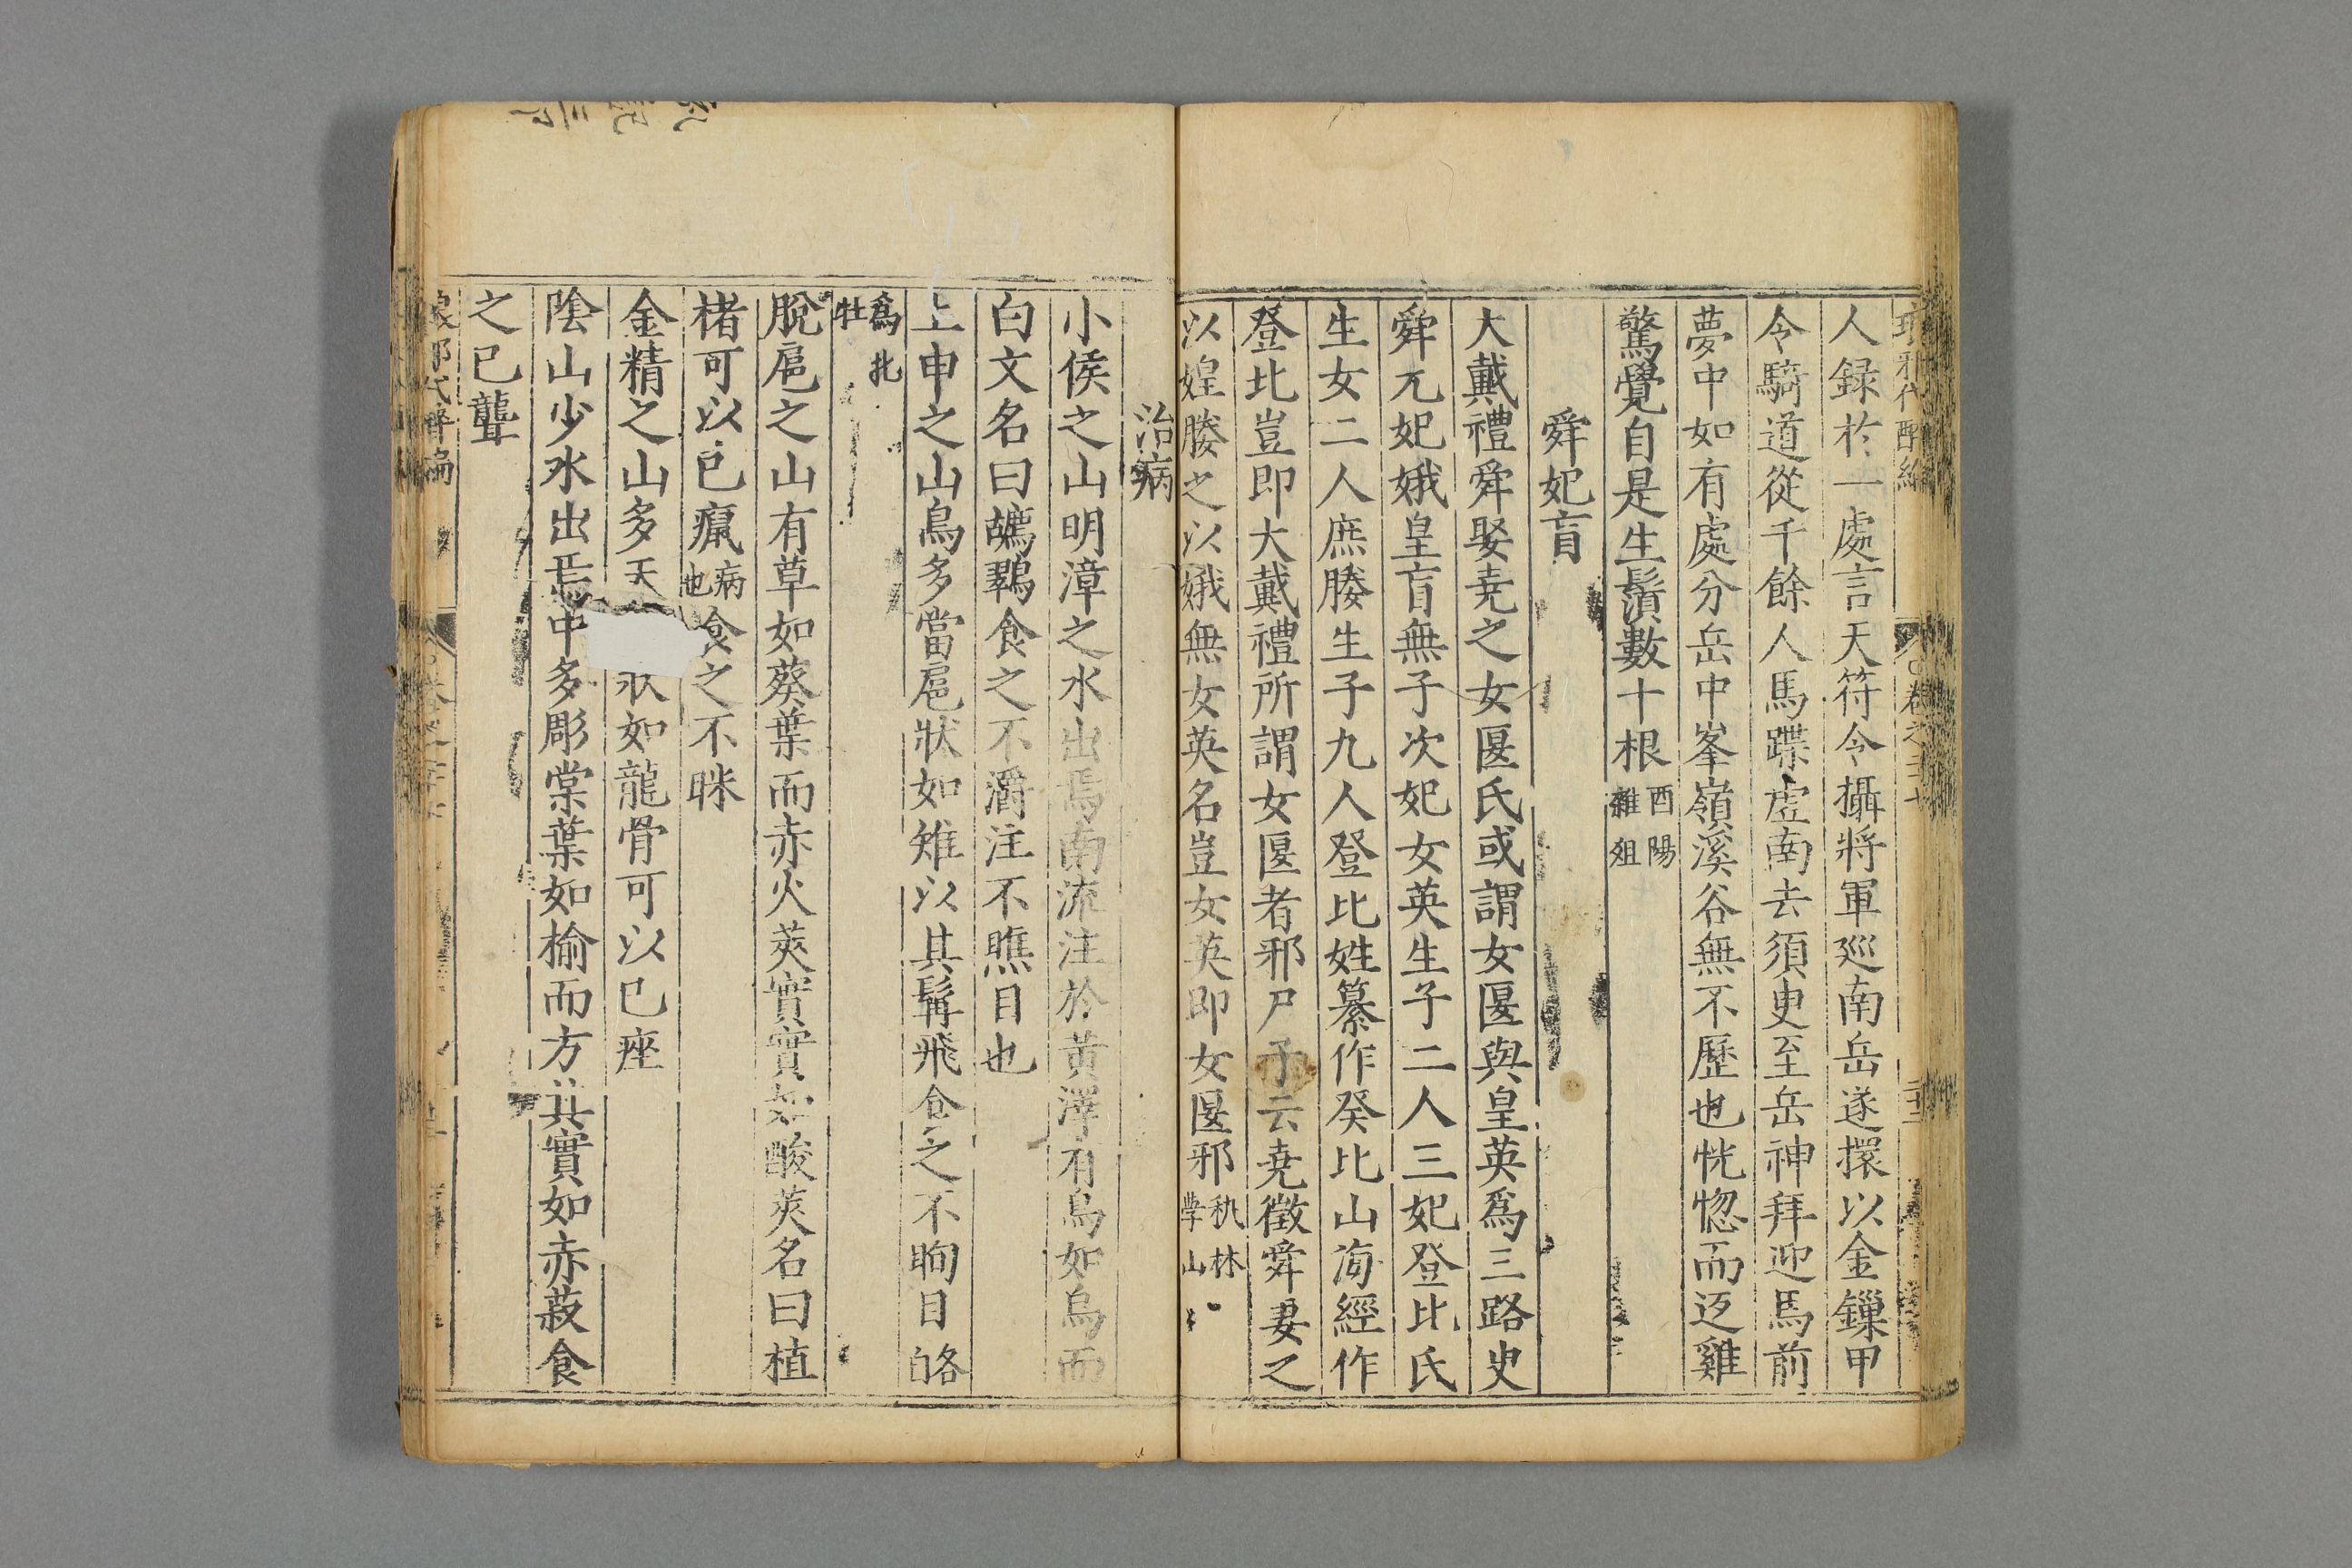 人録於一處言天符令攝將軍巡南岳遂擐以金鏁甲
令騎道從千餘人馬蹀虛南去須吏至岳神拜迎馬前
夢中如有處分岳中峯嶺溪谷無不歷也恍惚而迓雞
驚覺自是生鬚數十根酉陽雜俎
舜妃盲
大戴禮舜娶堯之女匽氏或謂女匽與皇英爲三路史
舜元妃娥皇盲無子次妃女英生子二人三妃登比氏
生女二人庶媵生子九人登比姓纂作癸比山海經作
登北豈即大戴禮所謂女匽者邪尸子云堯徵舜妻之
以媓媵之以娥無女英名豈女英即女匽邪秇林學山
治病
小侯之山明漳之水出焉南流注於黃澤有鳥如烏而
白文名曰鴣鸐食之不灂注不瞧目也
上申之山鳥多當扈狀如雉以其髯飛食之不眴目𩿊
爲牝牡
脫扈之山有草如葵葉而赤火莢實實如酸莢名曰植
楮可以已癙病也食之不眯
金精之山多天 狀如龍骨可以已痤
陰山少水出焉中多彫棠葉如榆而方其實如赤菽食
之已聾